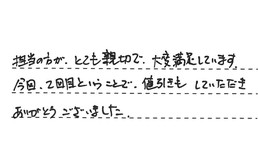 担当の方が、とても親切で、大変満足しています。
今回、2回目ということで、値引きも していただき
ありがとう ございました。